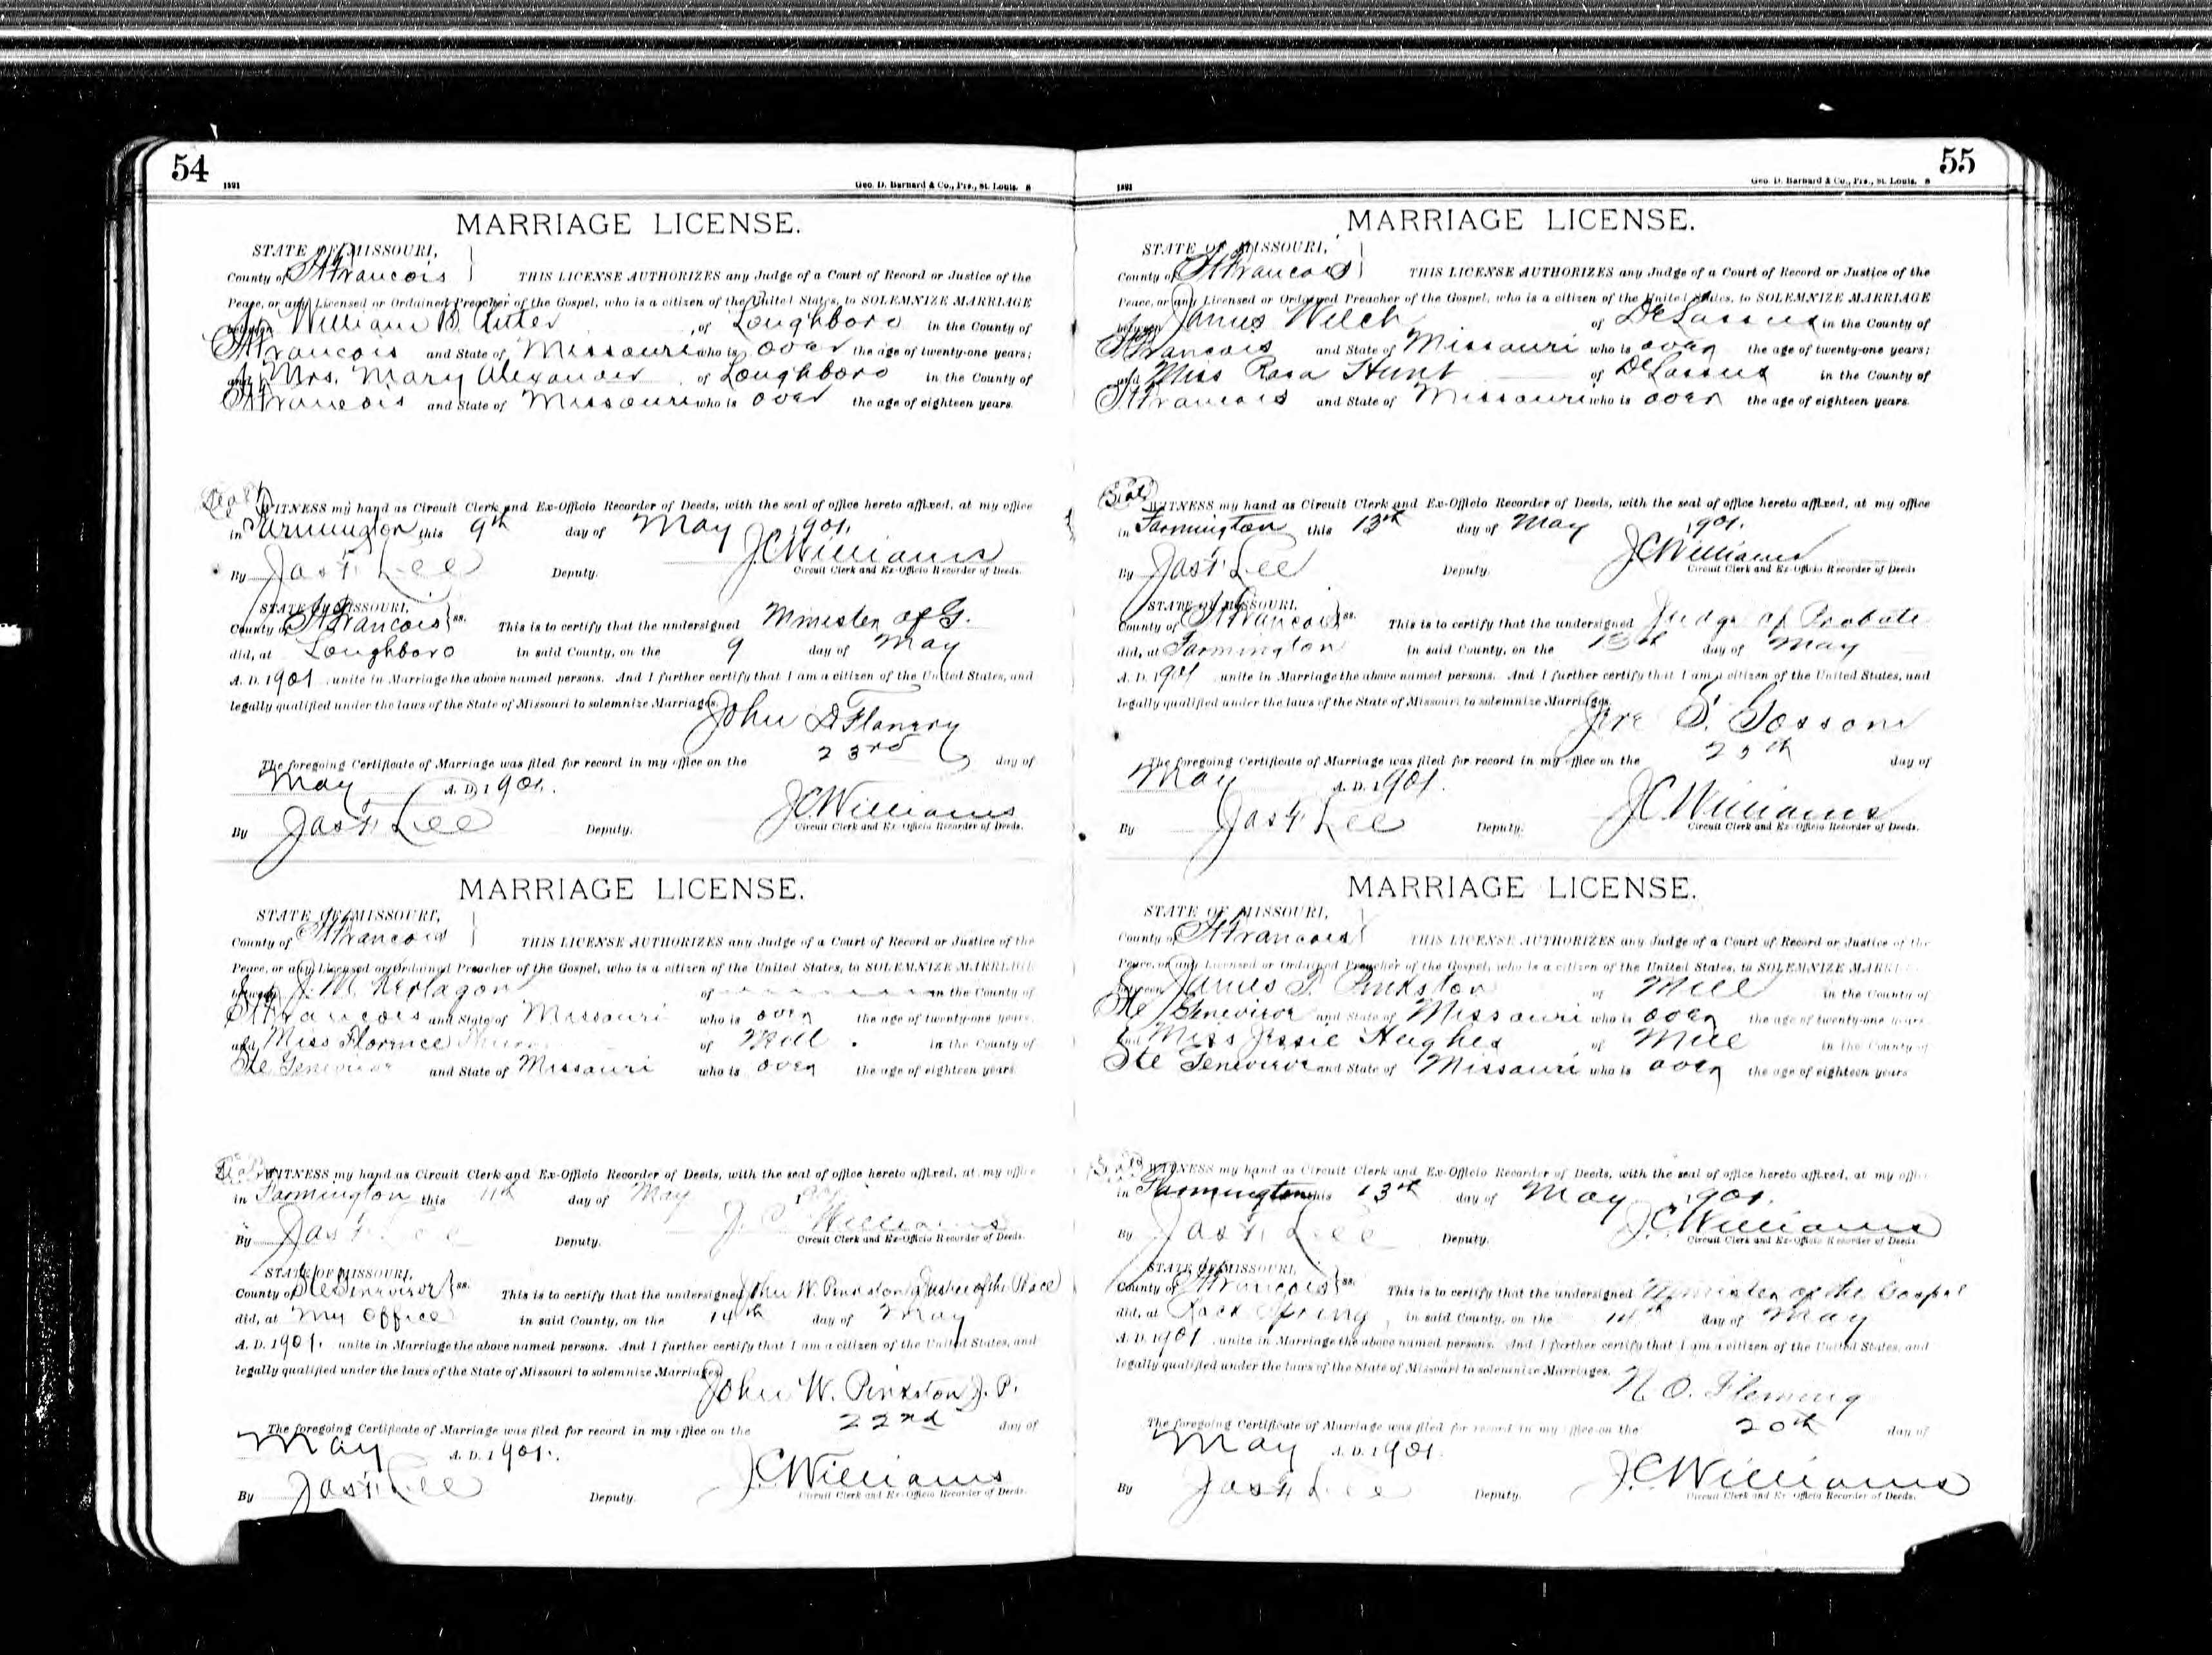 54
1891
Geo. D. Barnard & Co., Prs., St. Louis. 8
MARRIAGE LICENSE.
STATE OF MISSOURI,
County of St Francois THIS LICENSE AUTHORIZES any Judge of a Court of Record or Justice of the
Peace, or any Licensed or Ordained Preacher of the Gospel, who is a citizen of the United States, to SOLEMNIZE MARRIAGE
between William B. of Loughboro in the County of
St Francois and State of Missouri who is over the age of twenty-one years;
and Mrs. Mary Alexander of Loughboro in the County of
St Francois and State of Missouri who is over the age of eighteen years.
Seal WITNESS my hand as Circuit Clerk and Ex-Officio Recorder of Deeds, with the seal of office hereto affixed, at my office
in Farmington this 9th day of May 1901.
By Jas F. Lee Deputy. J.C. Williams
Circuit Clerk and Ex-Officio Recorder of Deeds.
STATE OF MISSOURI,
County of St Francois ss. This is to certify that the undersigned Minister of G.
did, at Loughboro in said County, on the 9 day of May
A. D. 1901 unite in Marriage the above named persons. And I further certify that I am a citizen of the United States, and
legally qualified under the laws of the State of Missouri to solemnize Marriages.
John D Flanery
The foregoing Certificate of Marriage was filed for record in my office on the 23rd day of
May A. D. 1901.
By Jas F. Lee Deputy. J.C. Williams
Circuit Clerk and Ex-Officio Recorder of Deeds.
MARRIAGE LICENSE.
STATE OF MISSOURI,
County of St Francois THIS LICENSE AUTHORIZES any Judge of a Court of Record or Justice of the
Peace, or any Licensed or Ordained Preacher of the Gospel, who is a citizen of the United States, to SOLEMNIZE MARRIAGE
between J. M. of in the County of
St Francois and State of Missouri who is over the age of twenty-one years.
and Miss Florence of Mill in the County of
Ste Genevieve and State of Missouri who is over the age of eighteen years
Seal WITNESS my hand as Circuit Clerk and Ex-Officio Recorder of Deeds, with the seal of office hereto affixed, at my office
in Farmington this 11th day of May 1901
By Jas F. Lee Deputy. J. C. Williams
Circuit Clerk and Ex-Officio Recorder of Deeds.
STATE OF MISSOURI,
County of Ste Genevieve ss. This is to certify that the undersigned John W. Pinkston Justice of the Peace
did, at My Office in said County, on the 14th day of May
A. D. 1901. unite in Marriage the above named persons. And I further certify that I am a citizen of the United States, and
legally qualified under the laws of the State of Missouri to solemnize Marriages.
John W. Pinkston J. P.
The foregoing Certificate of Marriage was filed for record in my office on the 22nd day of
May A. D. 1901.
By Jas F. Lee Deputy. J.C. Williams
Circuit Clerk and Ex-Officio Recorder of Deeds.
55
1891
Geo. D. Barnard & Co., Prs., St. Louis. 8
MARRIAGE LICENSE.
STATE OF MISSOURI,
County of St Francois THIS LICENSE AUTHORIZES any Judge of a Court of Record or Justice of the
Peace, or any Licensed or Ordained Preacher of the Gospel, who is a citizen of the United States, to SOLEMNIZE MARRIAGE
between James Welch of DeLassus in the County of
St Francois and State of Missouri who is over the age of twenty-one years;
and Miss Rosa Hunt of DeLassus in the County of
St Francois and State of Missouri who is over the age of eighteen years.
Seal WITNESS my hand as Circuit Clerk and Ex-Officio Recorder of Deeds, with the seal of office hereto affixed, at my office
in Farmington this 13th day of May 1901.
By Jas F. Lee Deputy. J.C. Williams
Circuit Clerk and Ex-Officio Recorder of Deeds
STATE OF MISSOURI,
County of St Francois ss. This is to certify that the undersigned Judge of Probate
did, at Farmington in said County, on the 13th day of May
A. D. 1901 unite in Marriage the above named persons. And I further certify that I am a citizen of the United States, and
legally qualified under the laws of the State of Missouri to solemnize Marriages.
Jere S. Gossom
The foregoing Certificate of Marriage was filed for record in my office on the day of
May A. D. 1901.
By Jas F. Lee Deputy. J.C. Williams
Circuit Clerk and Ex-Officio Recorder of Deeds.
MARRIAGE LICENSE.
STATE OF MISSOURI,
County of St Francois THIS LICENSE AUTHORIZES any Judge of a Court of Record or Justice of the
Peace, or any Licensed or Ordained Preacher of the Gospel, who is a citizen of the United States, to SOLEMNIZE MARRIAGE
between James T. Pinkston of Mill in the County of
Ste Genevieve and State of Missouri who is over the age of twenty-one years
and Miss Jessie Hughes of Mill in the County of
Ste Genevieve and State of Missouri who is over the age of eighteen years
Seal WITNESS my hand as Circuit Clerk and Ex-Officio Recorder of Deeds, with the seal of office hereto affixed, at my office
in Farmington this 13th day of May 1901.
By Jas F. Lee Deputy. J.C. Williams
Circuit Clerk and Ex-Officio Recorder of Deeds.
STATE OF MISSOURI,
County of St Francois ss. This is to certify that the undersigned Minister of the Gospel
did, at Rock Spring in said County, on the 14th day of May
A. D. 1901 unite in Marriage the above named persons. And I further certify that I am a citizen of the United States, and
legally qualified under the laws of the State of Missouri to solemnize Marriages.
N. O. Fleming
The foregoing Certificate of Marriage was filed for record in my office on the 20th day of
May A. D. 1901.
By Jas F. Lee Deputy. J.C. Williams
Circuit Clerk and Ex-Officio Recorder of Deeds.